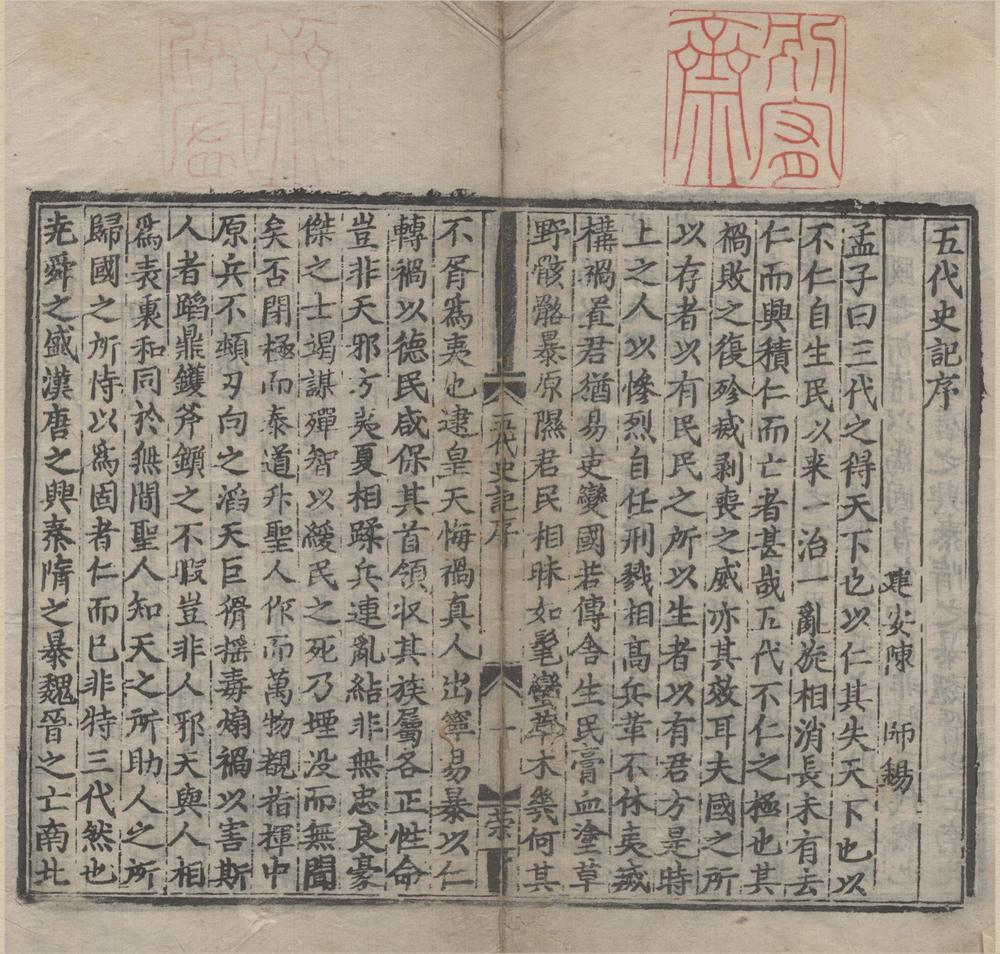 五代史記序
建安陳 師錫
孟子曰三代之得天下也以仁其失天下也以
不仁自生民以来一治一亂旋相消長未有去
仁而興積仁而亡者甚㢤五代不仁之極也其
禍敗之復殄滅剥喪之威亦其效耳夫國之所
以存者以有民民之所以生者以有君方是時
上之人以慘烈自任刑戮相髙兵革不休夷滅
構禍置君猶易吏變國若傳舎生民膏血塗草
野骸骼暴原隰君民相眎如髦蠻草木㡬何其
不胥爲夷也逮皇天悔禍真人出寧易暴以仁
轉禍以德民咸保其首領収其族屬各正性命
豈非天邪方夷夏相蹂兵連亂結非無忠良豪
傑之士竭謀殫智以緩民之死乃堙没而無聞
矣否閉極而泰道升聖人作而萬物覩指揮中
原兵不頓刃向之滔天巨猾揺毒煽禍以害斯
人者蹈鼎鑊斧鑕之不暇豈非人邪天與人相
爲表裏和同於無間聖人知天之所助人之所
歸國之所恃以爲固者仁而已非特三代然也
尭舜之盛漢唐之興秦隋之暴魏晉之亡南北
五代史記序
一